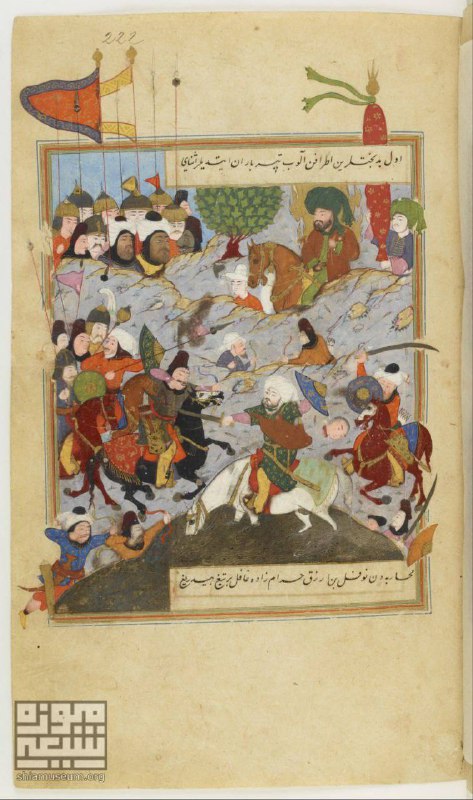 222
اول بدبختلر اطرافن آلوب تیر باران ایتدیلر اثنای
محاربه دن نوفل بن ارزق حرام زاده غافل بر تیغ
موزه
شیعه
shiamuseum.org